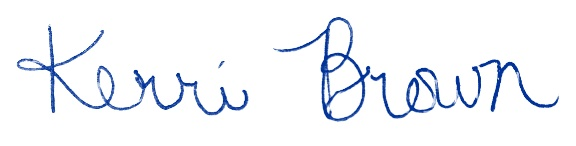 Kerri Brown